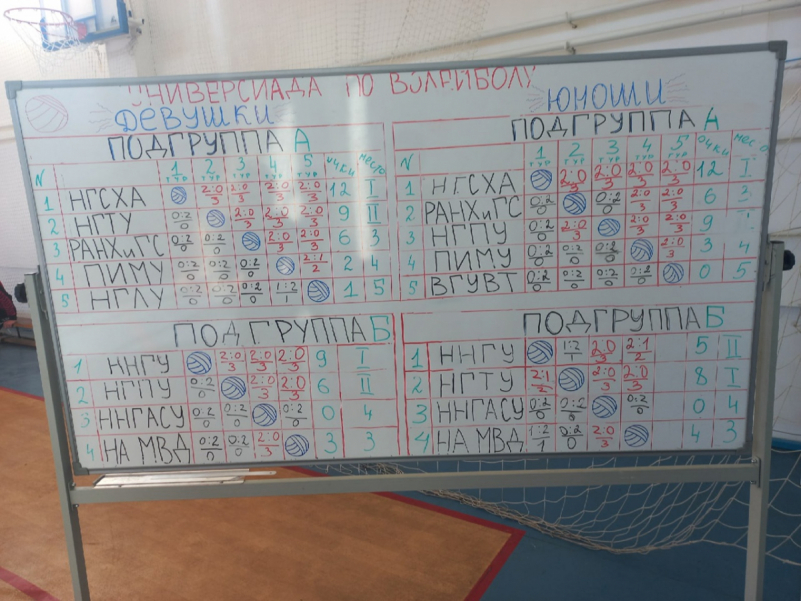 УНИВЕРСИАДА ПО ВОЛЕЙБОЛУ
ДЕВУШКИ
ПОДГРУППА А
N 1 ТУР 2 ТУР 3 ТУР 4 ТУР 5 ТУР ОЧКИ МЕСТО
1 НГСХА 2:0 3 2:0 3 2:0 3 2:0 3 12 I
2 НГТУ 0:2 0 2:0 3 2:0 3 2:0 3 9 II
3 РАНХиГС 0:2 0 0:2 0 2:0 3 2:0 3 6 3
4 ПИМУ 0:2 0 0:2 0 0:2 0 2:1 2 2 4
5 НГЛУ 0:2 0 0:2 0 0:2 0 1:2 1 1 5
ПОДГРУППА Б
1 ННГУ 2:0 3 2:0 3 2:0 3 9 I
2 НГПУ 0:2 0 2:0 3 2:0 3 6 II
3 ННГАСУ 0:2 0 0:2 0 0:2 0 0 4
4 НА МВД 0:2 0 0:2 0 2:0 3 3 3
ЮНОШИ
ПОДГРУППА А
N 1 ТУР 2 ТУР 3 ТУР 4 ТУР 5 ТУР ОЧКИ МЕСТО
1 НГСХА 2:0 3 2:0 3 2:0 3 2:0 3 12 I
2 РАНХиГС 0:2 0 0:2 0 2:0 3 2:0 3 6 3
3 НГПУ 0:2 0 2:0 3 2:0 3 2:0 3 9
4 ПИМУ 0:2 0 0:2 0 0:2 0 2:0 3 3 4
5 ВГУВТ 0:2 0 0:2 0 0:2 0 0:2 0 0 5
ПОДГРУППА Б
1 ННГУ 1:2 1 2:0 3 2:1 2 5 II
2 НГТУ 2:1 2 2:0 3 2:0 3 8 I
3 ННГАСУ 0:2 0 0:2 0 0:2 0 0 4
4 НА МВД 1:2 1 0:2 0 2:0 3 4 3